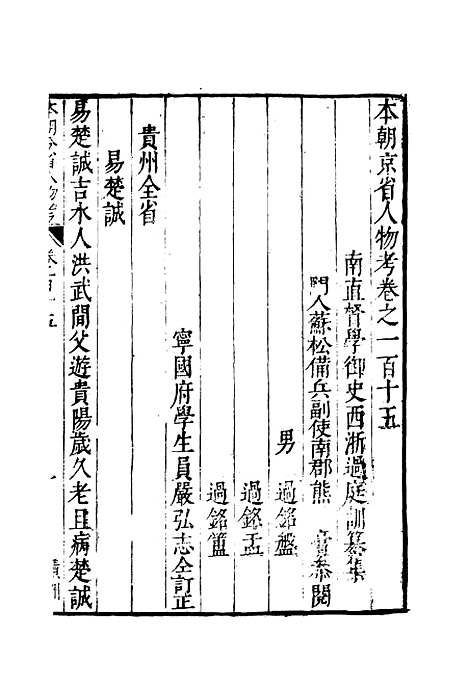 本朝京省人物考卷之一百十五
南直督學御史西浙過庭訓纂集
門人蘇松備兵副使南郡熊 叅閱
男 過銘盤
過銘盂
過銘簠
寧國府學生員嚴弘志仝訂正
貴州全省
易楚誠
易楚誠吉水人洪武間父遊貴陽歲久老且病楚誠
本朝分省人物考 卷一百十五 一 貴州